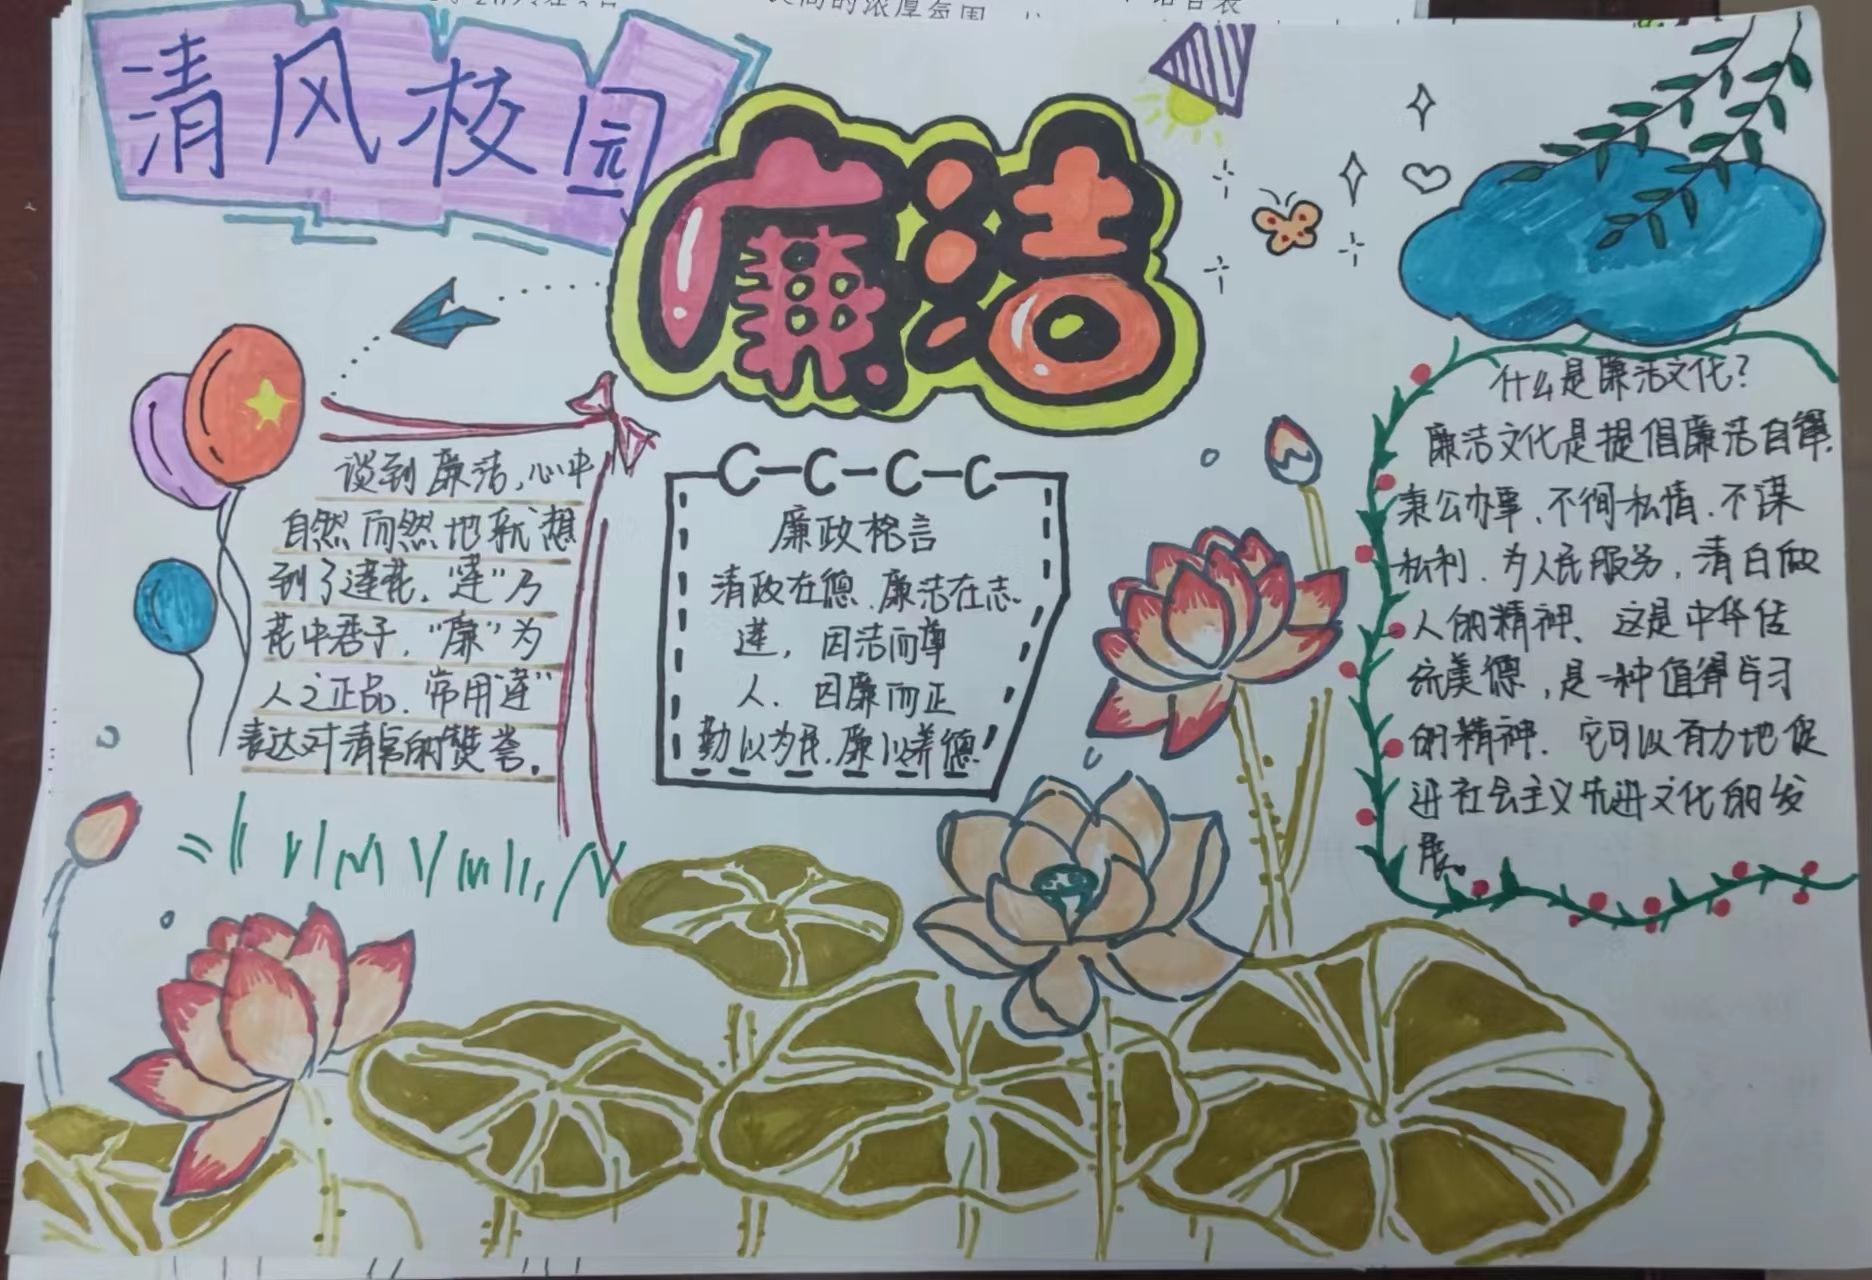 清风校园
廉洁
谈到廉洁,心中
自然而然地就想
到了莲花,"莲"乃
花中君子,"廉"为
人之正品,常用"莲"
表达对清官的赞誉。
廉政格言
清政在德、廉洁在志
莲,因洁而尊
人.因廉而正
勤以为民,廉以养德
什么是廉洁文化?
廉洁文化是提倡廉洁自律、
秉公办事、不徇私情、不谋
私利、为人民服务,清白做
人的精神、这是中华传
统美德,是一种值得学习
的精神.它可以有力地促
进社会主义先进文化的发
展。